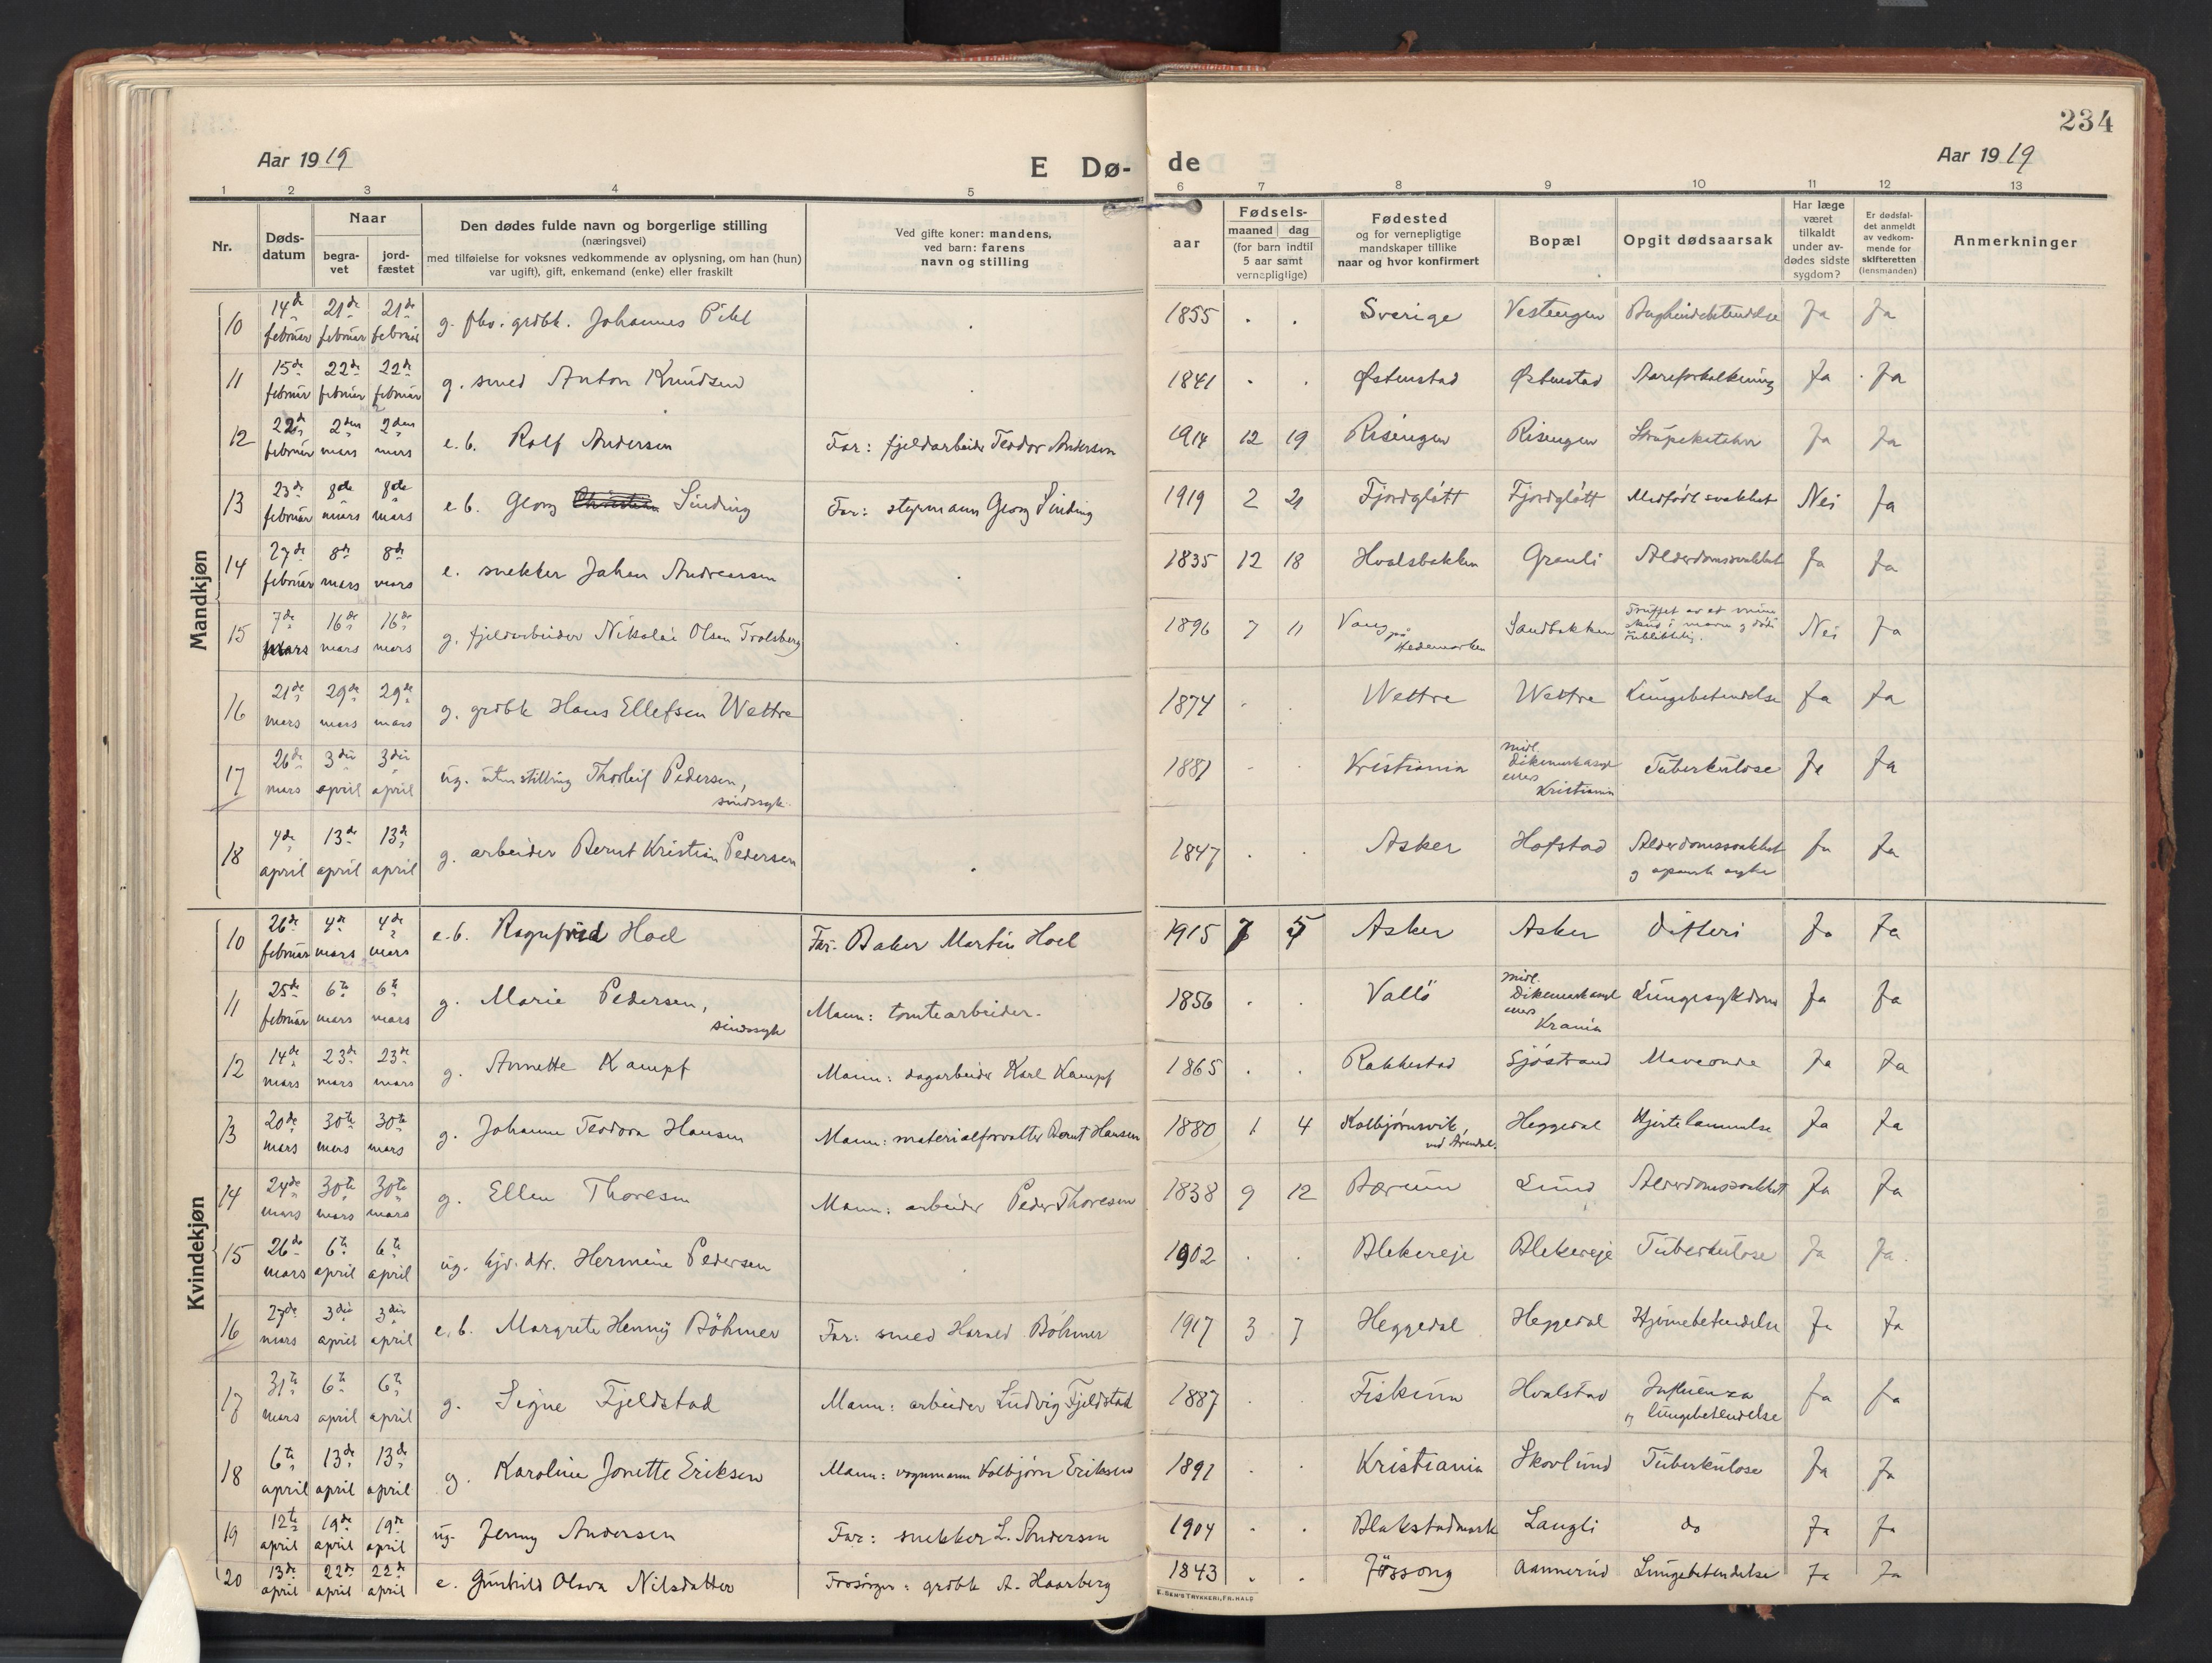 234
Aar 1919
E Dø-
de
Aar 1919
1 2 3 4 5 6 7 8 9 10 11 12 13
Nr.
Døds-
datum
Naar
begra-
vet
jord-
fæstet
Den dødes fulde navn og borgerlige stilling
(næringsvei)
med tilføielse for voksnes vedkommende av oplysning, om han (hun)
var ugift), gift, enkemand (enke) eller fraskilt
Ved gifte koner: mandens,
ved barn: farens
navn og stilling
aar
Fødsels-
maaned dag
(for barn indtil
5 aar samt
vernepligtige)
Fødested
og for vernepligtige
mandskaper tillike
naar og hvor konfirmert
Bopæl
Opgit dødsaarsak
Har læge
været
tilkaldt
under av-
dødes sidste
sygdom?
Er dødsfal-
det anmeldt
av vedkom-
mende for
skifteretten
(lensmanden)
Anmerkninger
Mandkjøn
10 14de februar 21de februar 21de februar g. fhv. grdbk. Johannes Pihl 1855 Sverige Vestengen Ja Ja
11 15de februar 22de februar 22de februar g. smed Anton Knudsen 1841 Østenstad Østenstad Aareforkalkning Ja Ja
12 22de februar 2den mars 2den mars e.b. Rolf Andersen Far: fjeldarbeider Teodor Andersen 1914 12 19 Risengen Risengen Strupekatahr Ja Ja
13 23de februar 8de mars 8de mars e.b. Georg Christian Sinding Far: styrmann Georg Sinding 1919 2 21 Fjordgløtt Fjordgløtt Medfødt svakhet Nei Ja
14 27de februar 8de mars 8de mars e. snekker Johan Andreassen 1835 12 18 Hvalsbakken Grauli Alderdomssvakhet Ja Ja
15 7de mars 16de mars 16de mars g. fjeldarbeider Nikolai Olsen Trolsberg 1896 7 11 Vang på Hedemarken Sandbakken Truffet av et mine
skud i maven og døde
øieblikkelig. Nei Ja
16 21de mars 29de mars 29de mars g. grdbk Hans Ellefsen Wettre 1874 Wettre Wettre Lungebetendelse Ja Ja
17 26de mars 3die april 3die april ug. uten stilling Thorleif Pedersen,
sindssyk. 1881 Kristiania midl.
Dikemarkasyl
ellers
Kristiania Tuberkulose Ja Ja
18 4de april 13de april 13de april g. arbeider Bernt Kristian Pedersen 1847 Asker Hofstad Alderdomssvakhet
og spansk syke Ja Ja
Kvindekjøn
10 26de februar 4de mars 4de mars e.b. Ragnfrid Hoel Far: Baker Martin Hoel 1915 7 5 Asker Asker Difteri Ja Ja
11 25de februar 6te mars 6te mars g. Marie Pedersen,
sindssyk Mann: tomtearbeider. 1856 Vallö midl.
Dikemarkasyl
ellers
Krania Lungesykdom Ja Ja
12 14de mars 23de mars 23de mars g. Annette Kampf Mann: dagarbeider Karl Kampf 1865 Rakkestad Sjøstrand Maveonde Ja Ja
13 20de mars 30te mars 30te mars g. Johanne Teodora Hansen Mann: materialforvalter Bernt Hansen 1880 1 4 Kolbjørnsvik,
ved Arendal. Heggedal Hjertelammelse Ja Ja
14 24de mars 30te mars 30te mars g. Ellen Thoresen Mann: arbeider Peder Thoresen 1838 9 12 Bærum Lund Alderdomssvakhet Ja Ja
15 26de mars 6te april 6te april ug. hjv. dtr. Hermine Pedersen 1902 Blekereje Blekereje Tuberkulose Ja Ja.
16 27de mars 3die april 3die april e.b. Margrete Henny Böhmer Far: smed Harald Böhmer 1917 3 7 Heggedal Heggedal Hjernebetendelse Ja Ja
17 31te mars 6te april 6te april g. Signe Fjeldstad Mann: arbeider Ludvig Fjeldstad 1887 Fiskum Hvalstad Influenza
og lungebetendelse Ja Ja
18 6te april 13de april 13de april g. Karoline Jonette Eriksen Mann: vognmann Kolbjørn Eriksen 1891 Kristiania Skovlund Tuberkulose Ja Ja
19 12te april 19de april 19de april ug. Jenny Andersen Far: snekker L. Andersen 1904 Blakstadmark Langli do Ja Ja
20 13de april 22de april 22de april e. Gunhild Olava Nilsdatter Forsörger: grdbk A. Haarberg 1843 Jössong Aamnerud Lungebetendelse Ja Ja